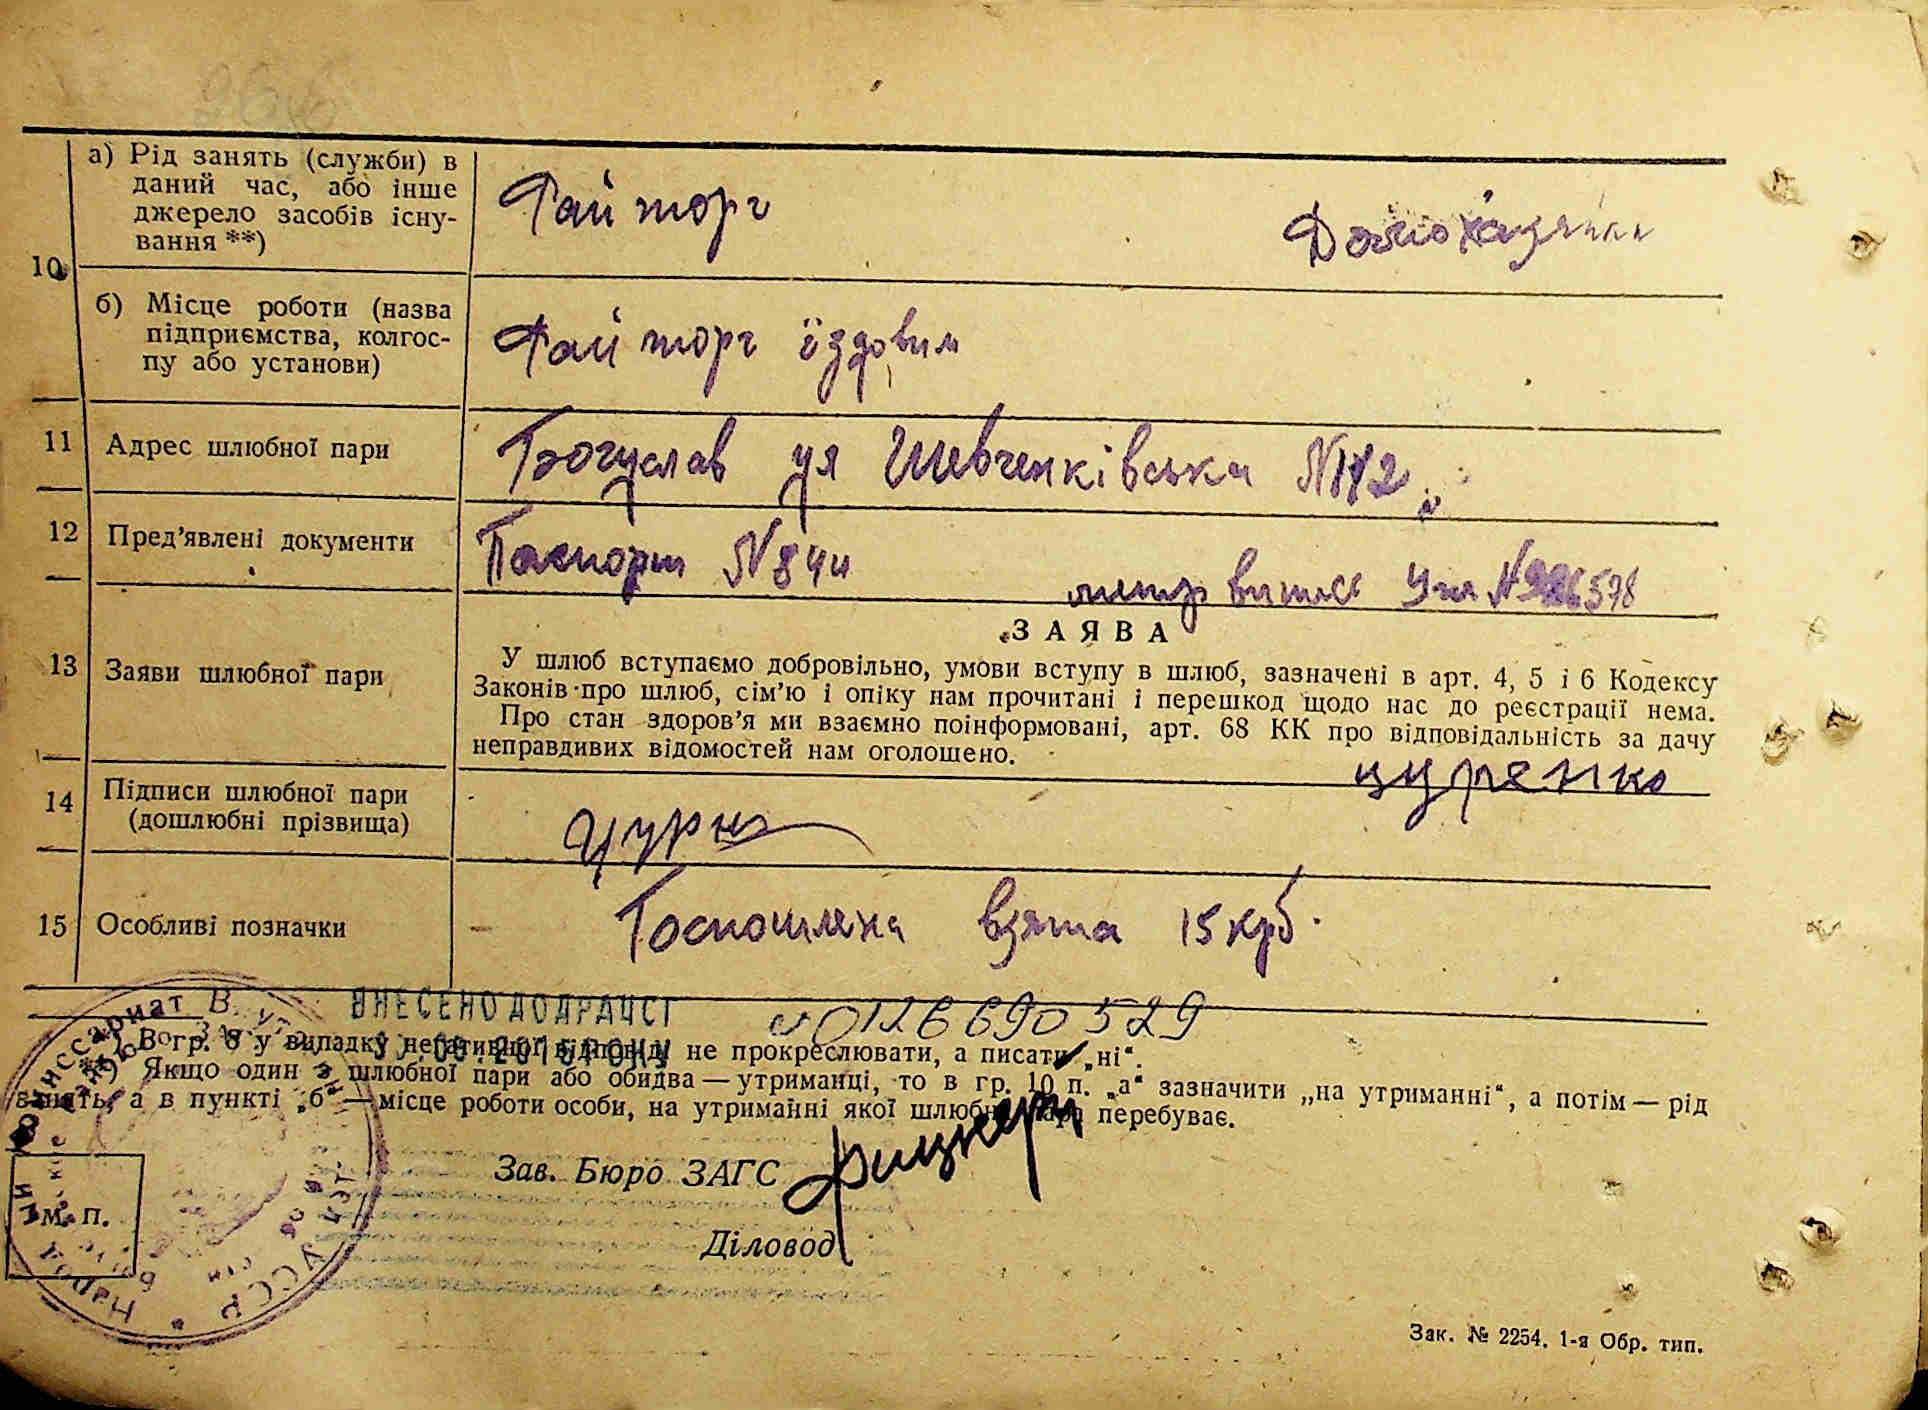 а) Рід занять (служби) в
даний час, або інше
джерело засобів існу-
вання **)
Райторг
Домохазяйка
10
б) Місце роботи (назва
підприємства, колгос-
пу або установи)
Райторг їздовим
11
Адрес шлюбної пари
Богуслав ул Шевченківська N112
12
Пред'явлені документи
Паспорт N 844
578
ЗАЯВА
13
Заяви шлюбної пари
У шлюб вступаємо добровільно, умови вступу в шлюб, зазначені в арт. 4, 5 і 6 Кодексу
Законів про шлюб, сім'ю і опіку нам прочитані і перешкод щодо нас до реєстрації нема.
Про стан здоров'я ми взаємно поінформовані, арт. 68 КК про відповідальність за дачу
неправдивих відомостей нам оголошено.
14
Підписи шлюбної пари
(дошлюбні прізвища)
цуренко
15
Особливі позначки
Госпошлена взята 15 крб.
ВНЕСЕНО ДО ДРАЦСГ
0126690529
*) В гр. 8 у випадку негативної відповіді не прокреслювати, а писати „ні“.
**) Якщо один з шлюбної пари або обидва — утриманці, то в гр. 10 п. „а“ зазначити „на утриманні“, а потім — рід
занять, а в пункті „б“ — місце роботи особи, на утриманні якої шлюбна пара перебуває.
Зав. Бюро ЗАГС
М. П.
Діловод
УССР
Зак. № 2254. 1-я Обр. тип.